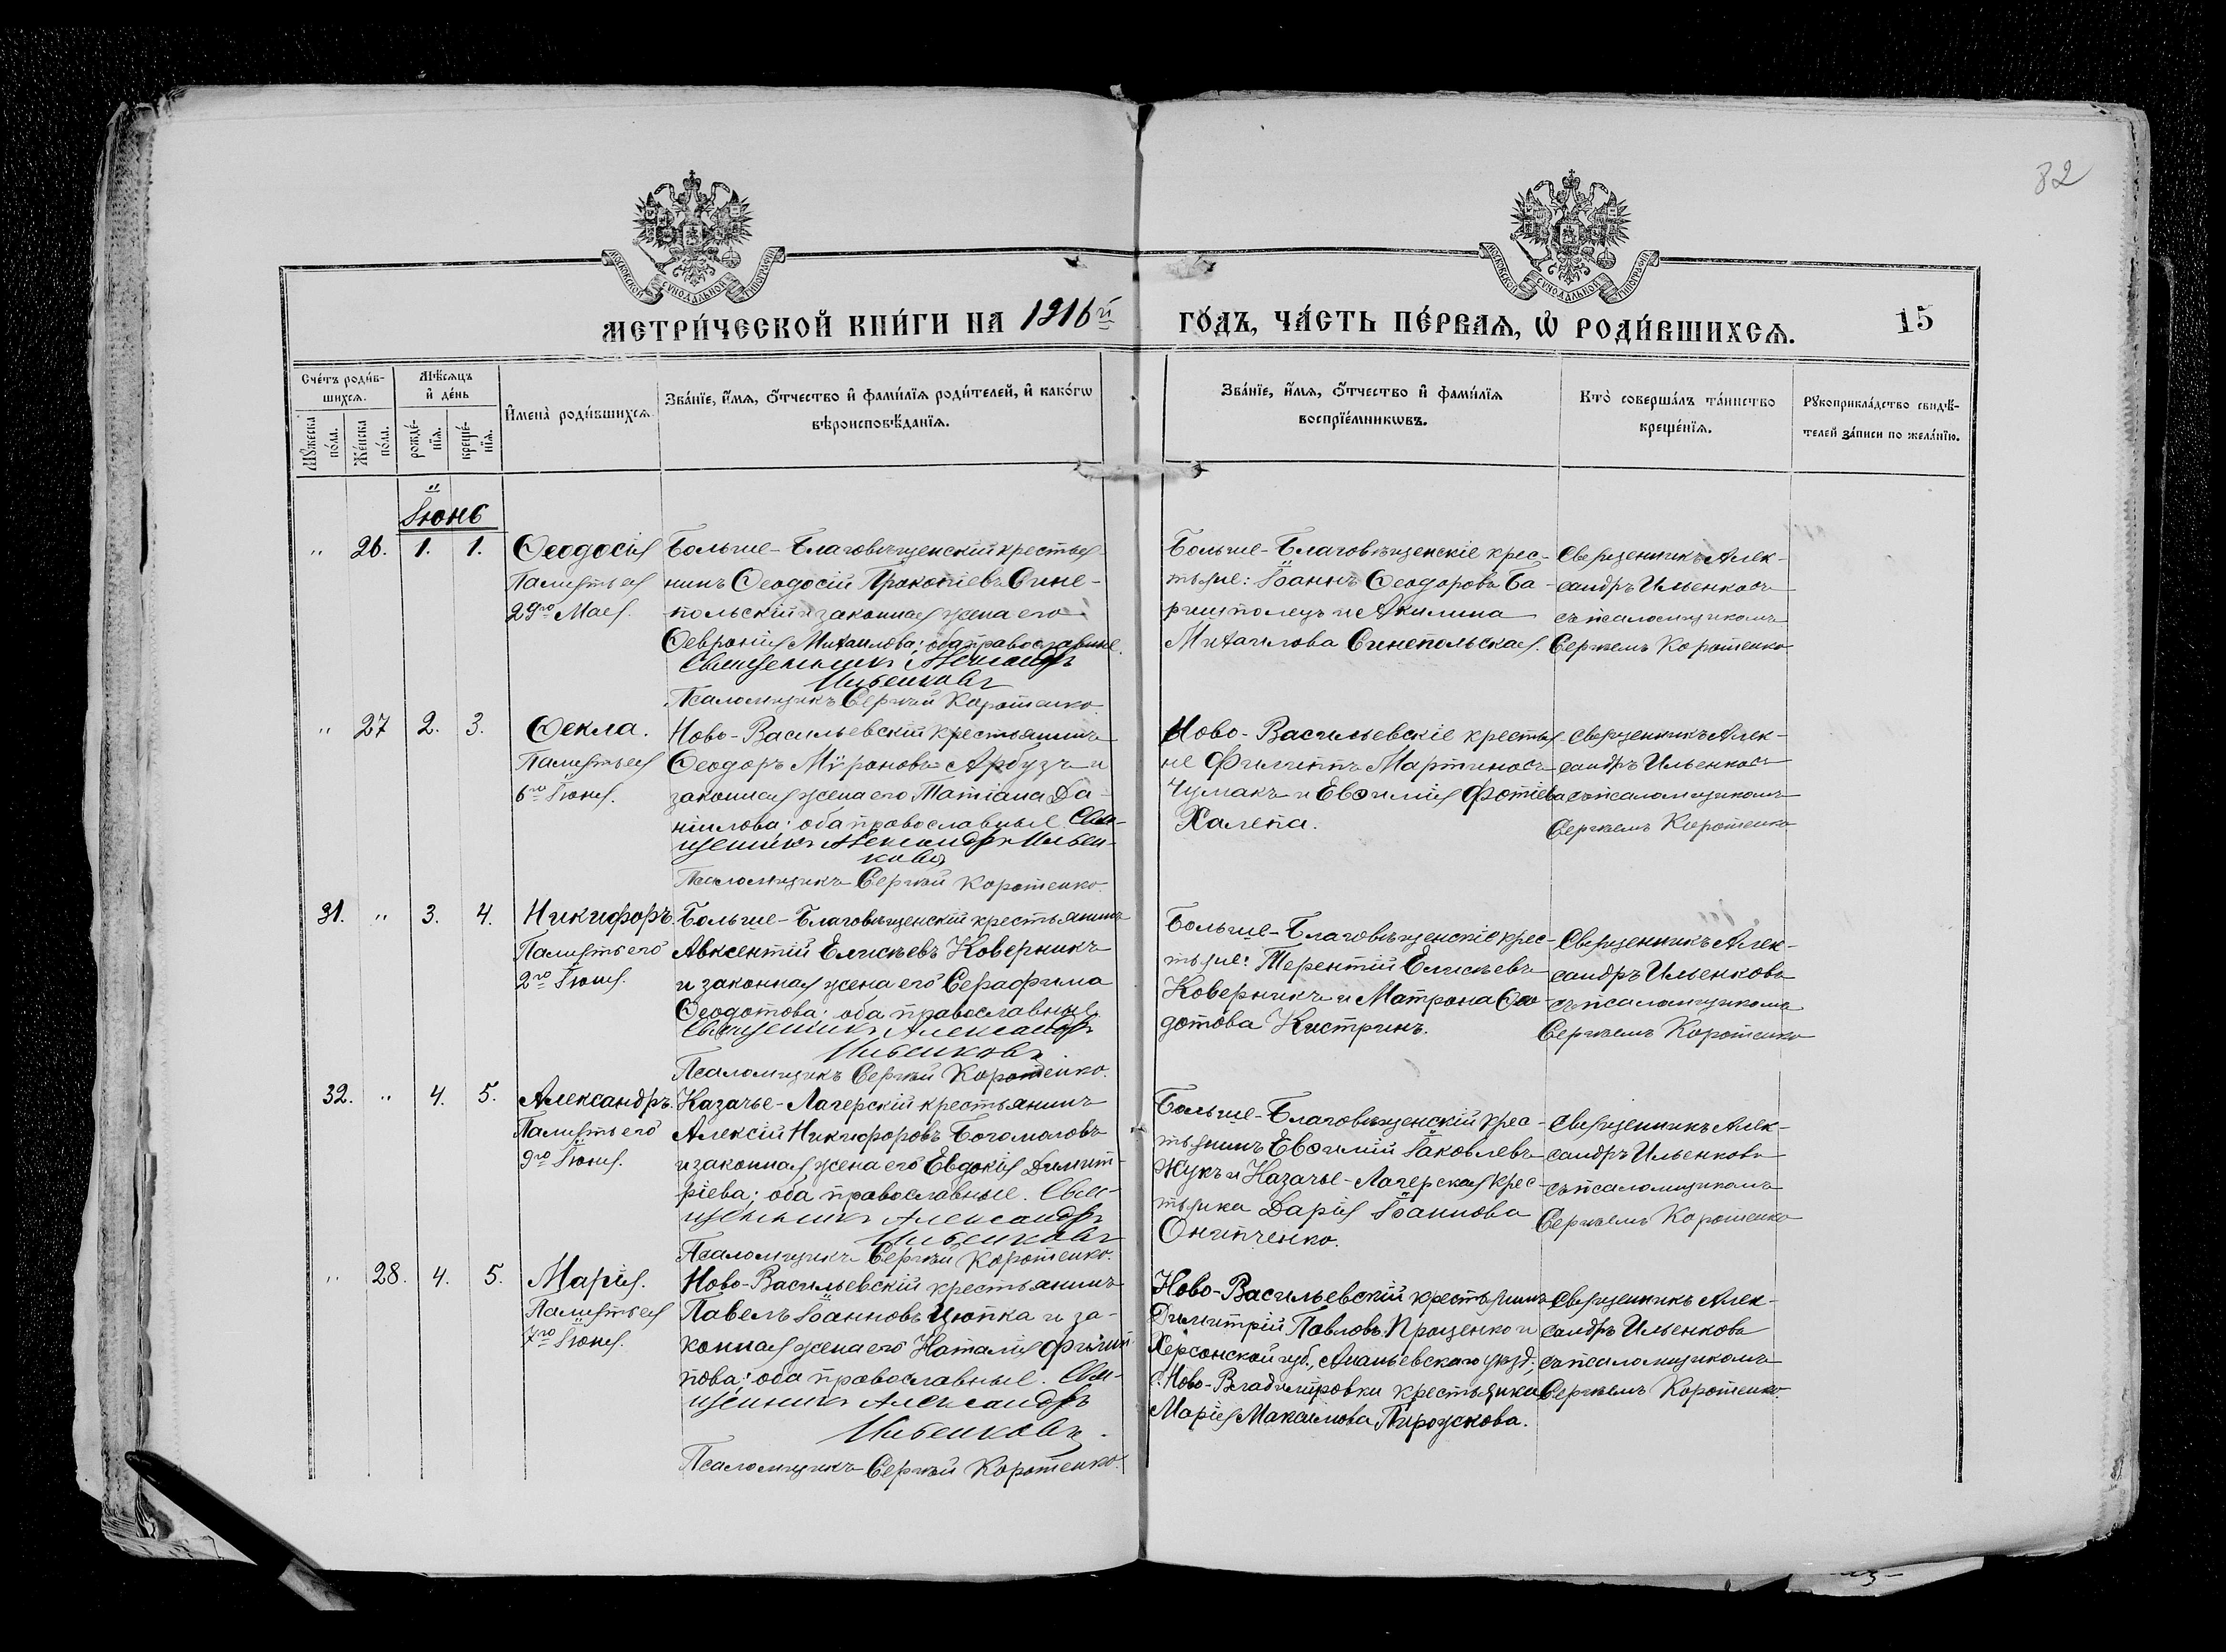 82
МОСКОВСКОЙ СѴНОДАЛЬНОЙ ТИПОГРАФІИ
МОСКОВСКОЙ СѴНОДАЛЬНОЙ ТИПОГРАФІИ
МЕТРИ́ЧЕСКОЙ КНИ́ГИ НА 1916й ГО́ДЪ, ЧА́СТЬ ПЕ́РВАѦ, Ѡ РОДИ́ВШИХСѦ. 15
Сче́тъ роди́в-
шихсѧ.
Мꙋ́жеска по́ла.
Же́нска по́ла.
Мѣ́сѧцъ и҆ де́нь
рожде́-нїѧ.
креще́-нїѧ.
И҆мена̀ роди́вшихсѧ.
Зва́нїе, и҆́мѧ, ѻ҆́тчество и҆ фами́лїѧ роди́телей, и҆ како́гѡ
вѣроисповѣ́данїѧ.
Зва́нїе, и҆́мѧ, ѻ҆́тчество и҆ фами́лїѧ
воспрїе́мникѡвъ.
Кто̀ соверша́лъ та́инство
креще́нїѧ.
Рꙋкоприкла́дство свидѣ́-
телей за́писи по жела́нїю.
Іюнь
" 26. 1. 1. Ѳеодосія
Память ея
29го Мая.
Больше-Благовѣщенскій крестья-
нинъ Ѳеодосій Прокопіевъ Сине-
польскій и законная жена его
Ѳевронія Михаилова; оба православные.
Священникъ Александръ
Ильенковъ
Псаломщикъ Сергѣй Коротенко.
Больше-Благовѣщенскіе крес-
тьяне: Іоаннъ Ѳеодоровъ Ба-
ришполецъ и Акилина
Михаилова Синепольская.
Священникъ Алек-
сандръ Ильенковъ
съ псаломщикомъ
Сергѣемъ Коротенко
" 27 2. 3. Ѳекла.
Память ея
6го Іюня.
Ново-Васильевскій крестьянинъ
Ѳеодоръ Мѵроновъ Арбузъ и
законная жена его Татіана Да-
ніилова; оба православные. Свя-
щенникъ Александръ Ильен-
ковъ
Псаломщикъ Сергѣй Коротенко.
Ново-Васильевскіе крестья-
не Филиппъ Мартиновъ
Чумакъ и Евѳимія Фотіева
Халепа.
Священникъ Алек-
сандръ Ильенковъ
съ псаломщикомъ
Сергѣемъ Коротенко
31. " 3. 4. Никифоръ.
Память его
2го Іюня.
Больше-Благовѣщенскій крестьянинъ
Авксентій Елисѣевъ Коверникъ
и законная жена его Серафима
Ѳеодотова; оба православные.
Священникъ Александръ
Ильенковъ
Псаломщикъ Сергѣй Коротенко.
Больше-Благовѣщенскіе крес-
тьяне: Терентій Елисѣевъ
Коверникъ и Матрона Ѳео-
дотова Кистринъ.
Священникъ Алек-
сандръ Ильенковъ
съ псаломщикомъ
Сергѣемъ Коротенко
32. " 4. 5. Александръ.
Память его
9го Іюня.
Казачье-Лагерскій крестьянинъ
Алексій Никифоровъ Богомоловъ
и законная жена его Евдокія Димит-
ріева; оба православные. Свя-
щенникъ Александръ
Ильенковъ
Псаломщикъ Сергѣй Коротенко.
Больше-Благовѣщенскій крес-
тьянинъ Евѳимій Іаковлевъ
Жукъ и Казачье-Лагерская крес-
тьянка Дарія Іоаннова
Онипченко.
Священникъ Алек-
сандръ Ильенковъ
съ псаломщикомъ
Сергѣемъ Коротенко
" 28. 4. 5. Марія.
Память ея
7го Іюня.
Ново-Васильевскій крестьянинъ
Павелъ Іоанновъ Цюпка и за-
конная жена его Наталія Филип-
пова; оба православные. Свя-
щенникъ Александръ
Ильенковъ.
Псаломщикъ Сергѣй Коротенко.
Ново-Васильевскій крестьянинъ
Димитрій Павловъ Проценко и
Херсонской губ., Ананьевскаго уѣзд.,
с. Ново-Владиміровки крестьянка
Марія Максимова
Священникъ Алек-
сандръ Ильенковъ
съ псаломщикомъ
Сергѣемъ Коротенко